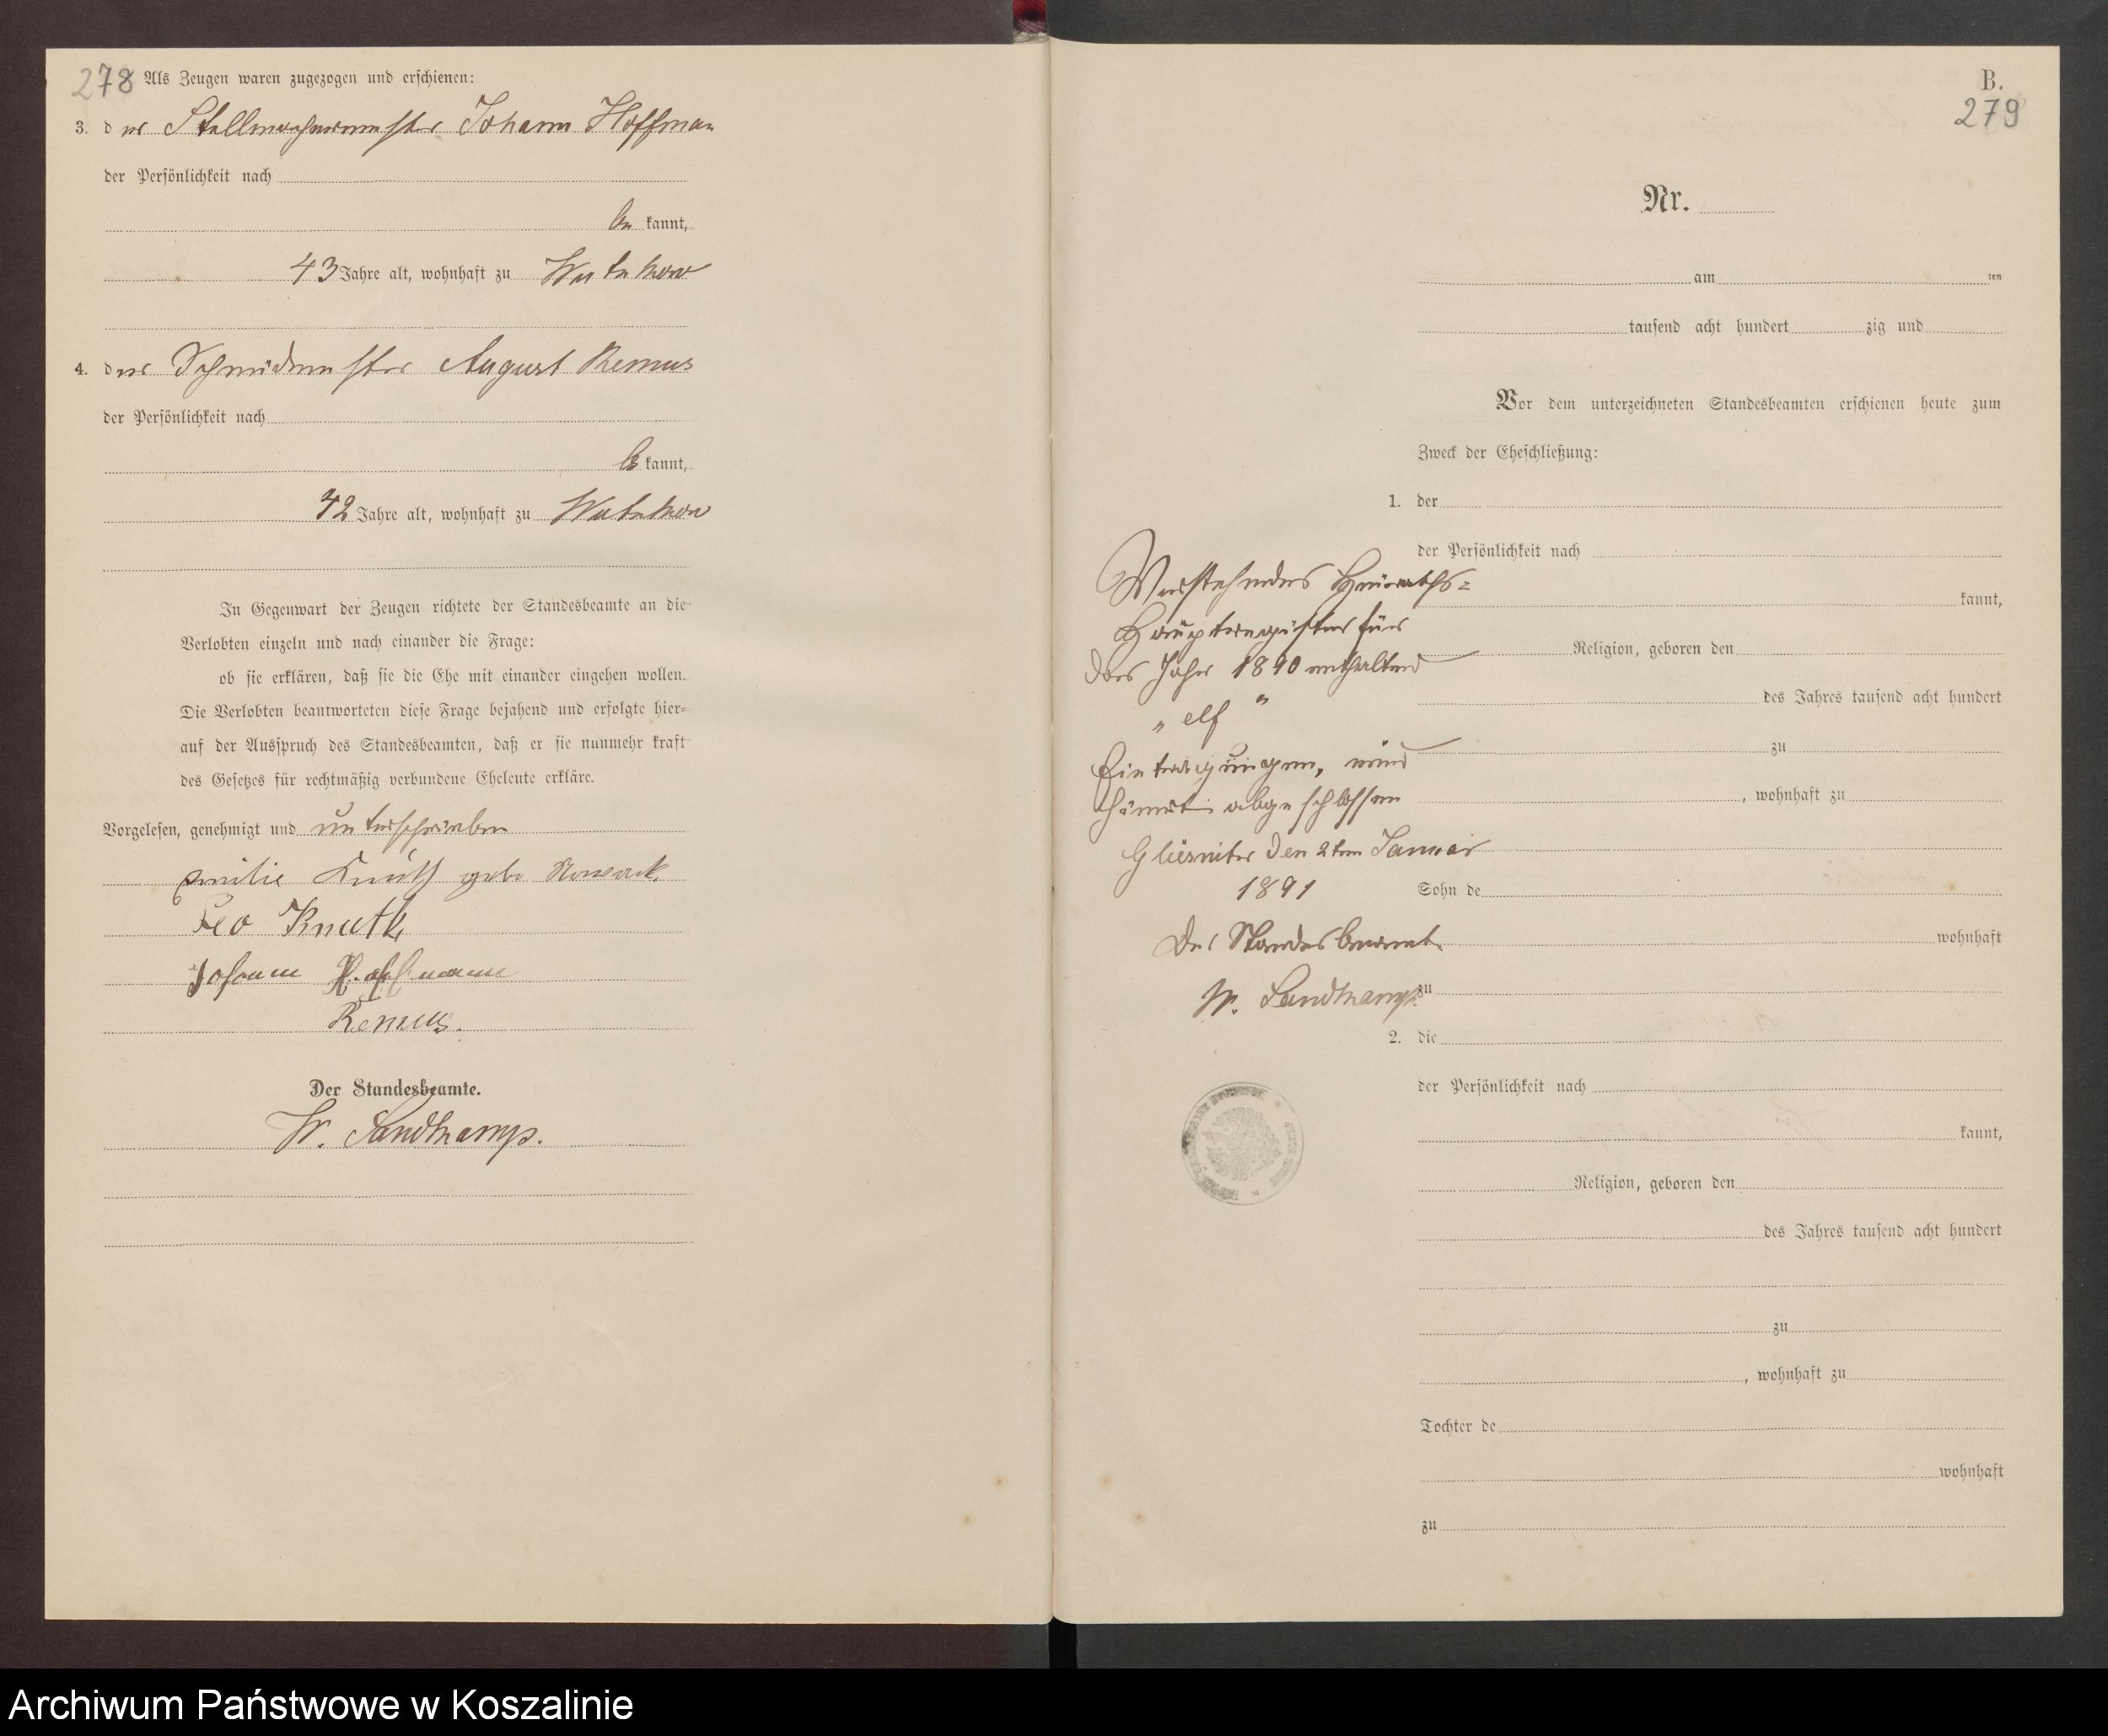 278
Als Zeugen waren zugezogen und erschienen:
3. der Stellmachermeister Johann Hoffman
der Persönlichkeit nach
be kannt,
43 Jahre alt, wohnhaft zu Wutzkow
4. der Schmiedemeister August Remus
der Persönlichkeit nach
be kannt,
42 Jahre alt, wohnhaft zu Wutzkow
In Gegenwart der Zeugen richtete der Standesbeamte an die
Verlobten einzeln und nach einander die Frage:
ob sie erklären, daß sie die Ehe mit einander eingehen wollen.
Die Verlobten beantworteten diese Frage bejahend und erfolgte hier-
auf der Ausspruch des Standesbeamten, daß er sie nunmehr kraft
des Gesetzes für rechtmäßig verbundene Eheleute erkläre.
Vorgelesen, genehmigt und unterschrieben
Emilie Knuth geb. Nowack
Leo Knuth
Johann Hoffmann
Remus.
Der Standesbeamte.
W. Sandkamp.
B.
279
Nr.
am ten
tausend acht hundert zig und
Vor dem unterzeichneten Standesbeamten erschienen heute zum
Zweck der Eheschließung:
1. der
der Persönlichkeit nach
kannt,
Religion, geboren den
des Jahres tausend acht hundert
zu
, wohnhaft zu
Sohn de
wohnhaft
zu
2. die
der Persönlichkeit nach
kannt,
Religion, geboren den
des Jahres tausend acht hundert
zu
, wohnhaft zu
Tochter de
wohnhaft
zu
Vorstehendes Heiraths-
Hauptregister für
das Jahr 1890 enthaltend
„ elf "
Eintragungen, wird
hiermit abgeschlossen
den 2ten Januar
1891
Der Standesbeamte
W. Sandkamp
Archiwum Państwowe w Koszalinie